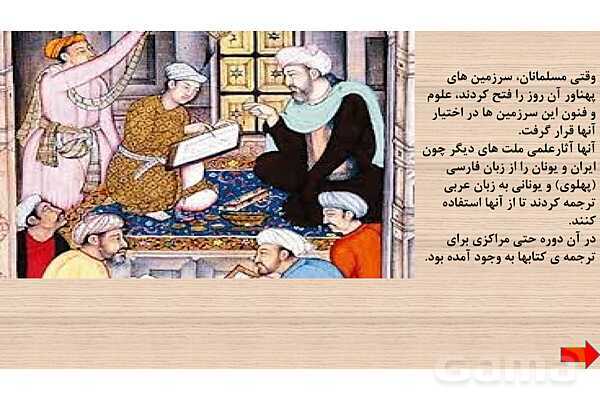 وقتی مسلمانان، سرزمین های
پهناور آن روز را فتح کردند، علوم
و فنون این سرزمین ها در اختیار
آنها قرار گرفت.
آنها آثارعلمی ملت های دیگر چون
ایران و یونان را از زبان فارسی
(پهلوی) و یونانی به زبان عربی
ترجمه کردند تا از آنها استفاده
کنند.
در آن دوره حتی مراکزی برای
ترجمه ی کتابها به وجود آمده بود.
Gama